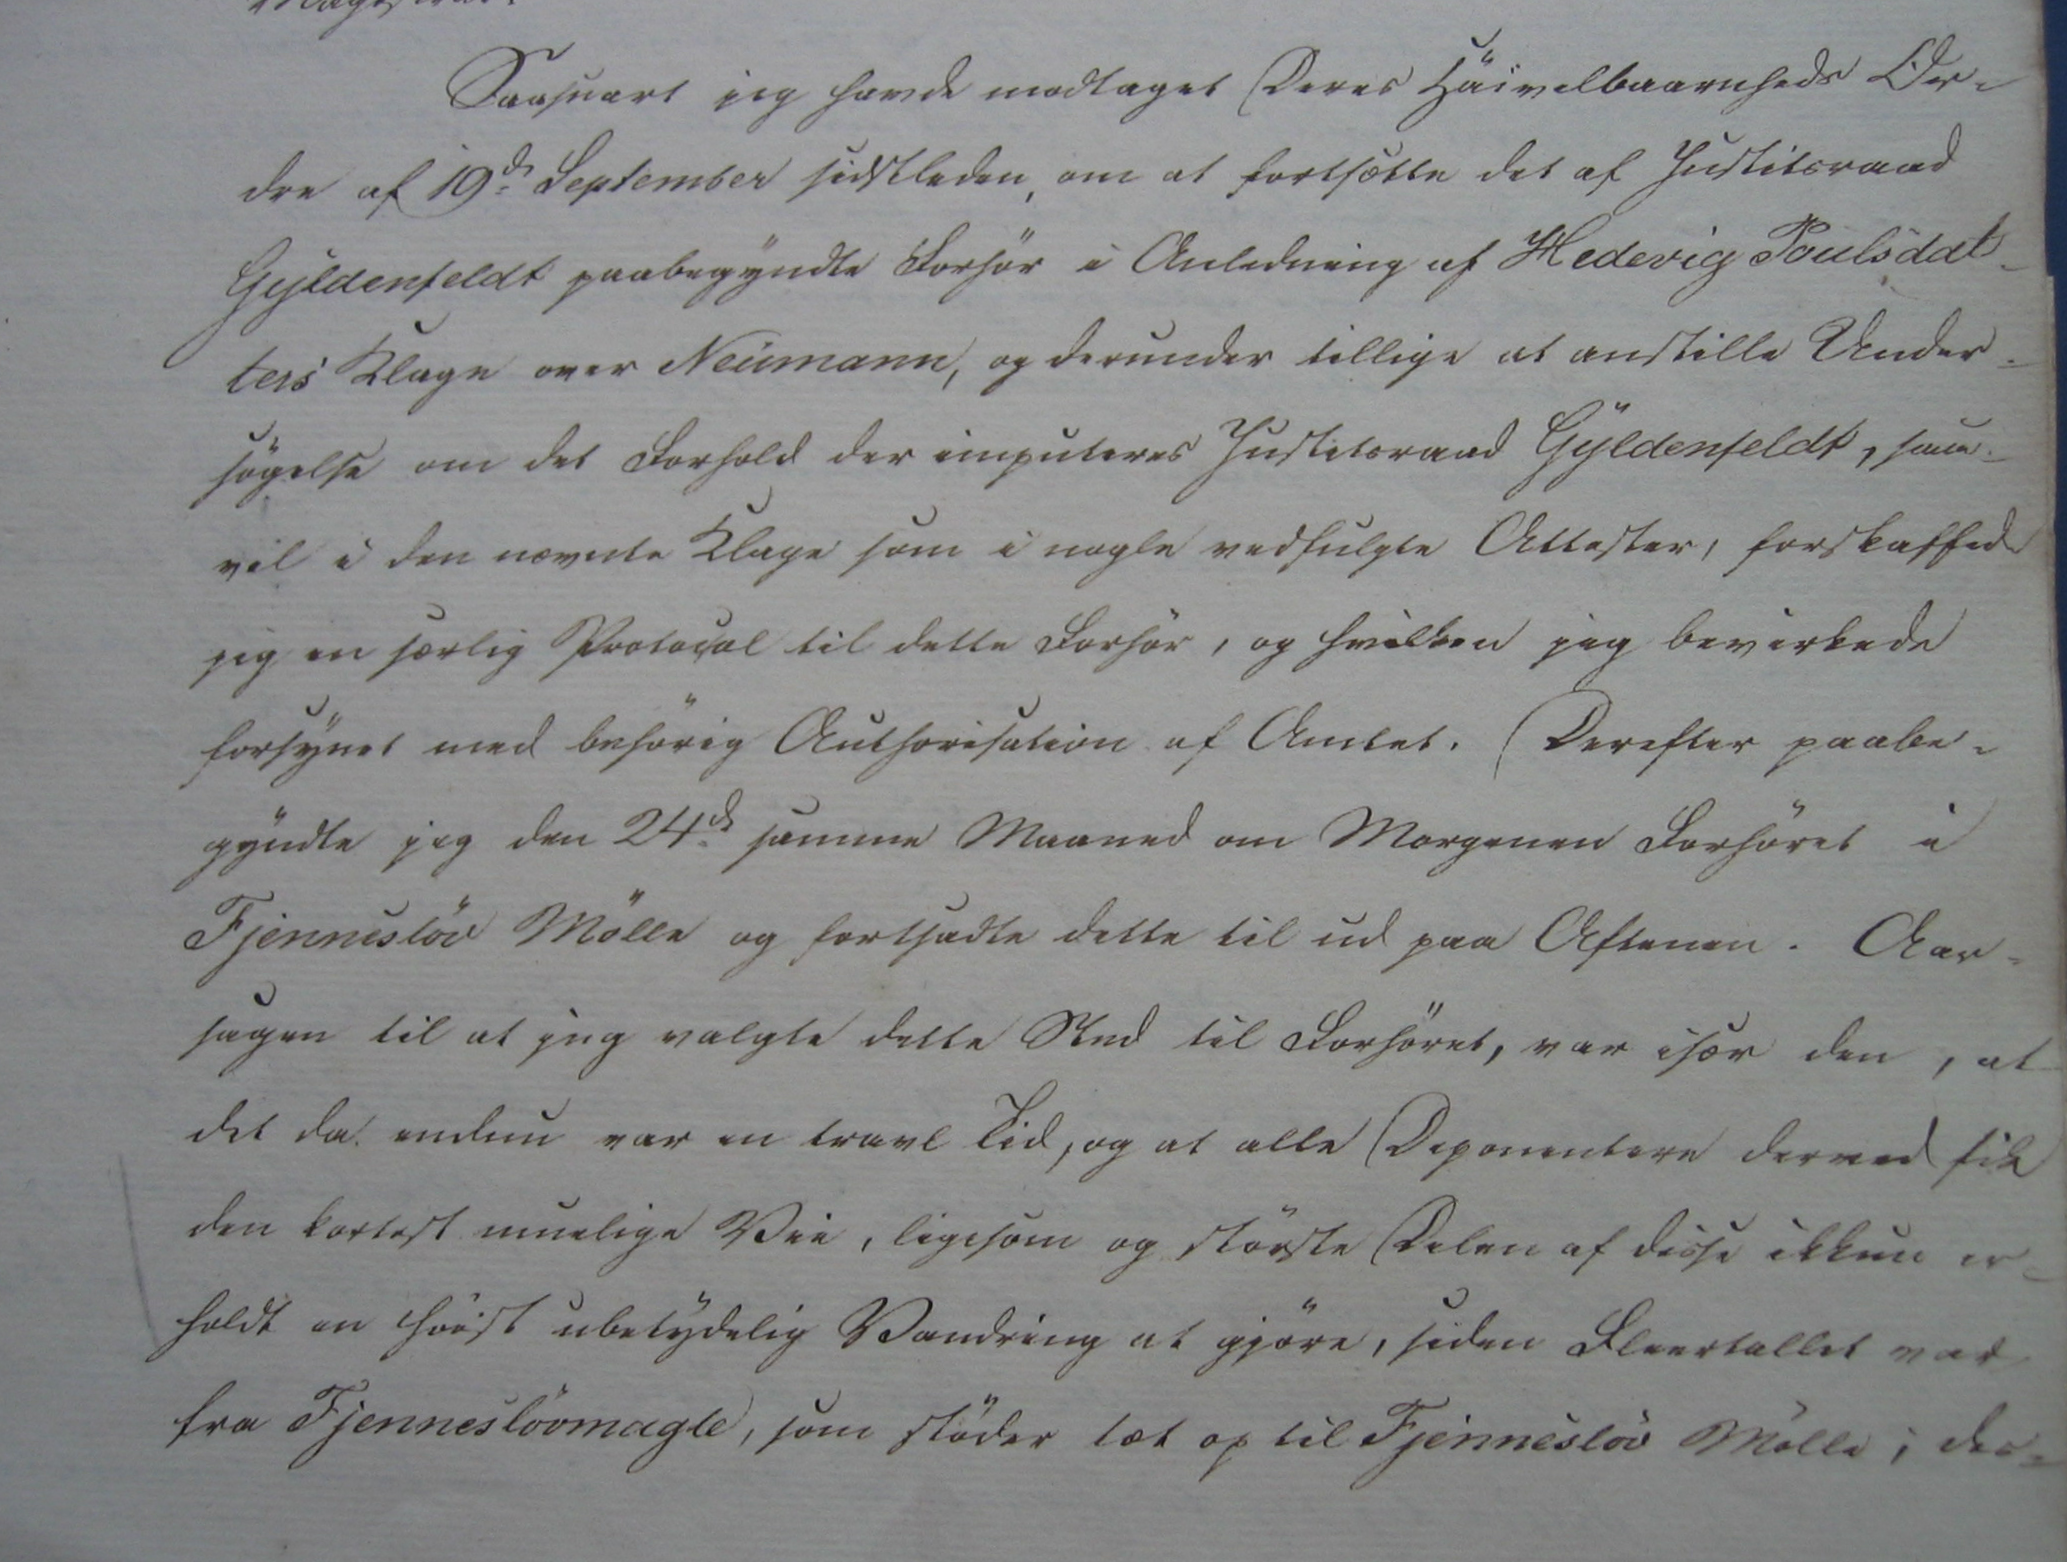 Saasnart jeg havde modtaget Deres Høivelbaarnheds Or-
dre af 19de September sidstleden, om at fortsætte det af Justitsraad
Gÿldenfeldt paabegyndte Forhör i Anledning af Hedevig Poulsdat-
ters Klage over Neumann, og derunder tillige at anstille Under-
sögelse om det Forhold der imputeres Justitsraad Gÿldenfeldt, saa-
vel i den nævnte Klage som i nogle vedfulgte Attester, forskaffede
jeg en særlig Protocol til dette Forhör, og hvilken jeg bevirkede
forsynet med behörig Authorisation af Amtet. Derefter paabe-
gyndte jeg den 24de samme Maaned om Morgenen Forhöret i
Fjenneslöv Mölle og fortsadte dette til ud paa Aftenen. Aar-
sagen til at jeg valgte dette Sted til Forhöret, var især den, at
det da endnu var en travl Tid, og at alle Deponentere derved fik
den kortest muelige Vei, ligesom og störste Delen af disse ikkun er-
holdt en höist ubetydelig Vandring at gjöre, siden Fleertallet var
fra Fjenneslövmagle, som stöder tæt op til Fjenneslöv Mölle; des-